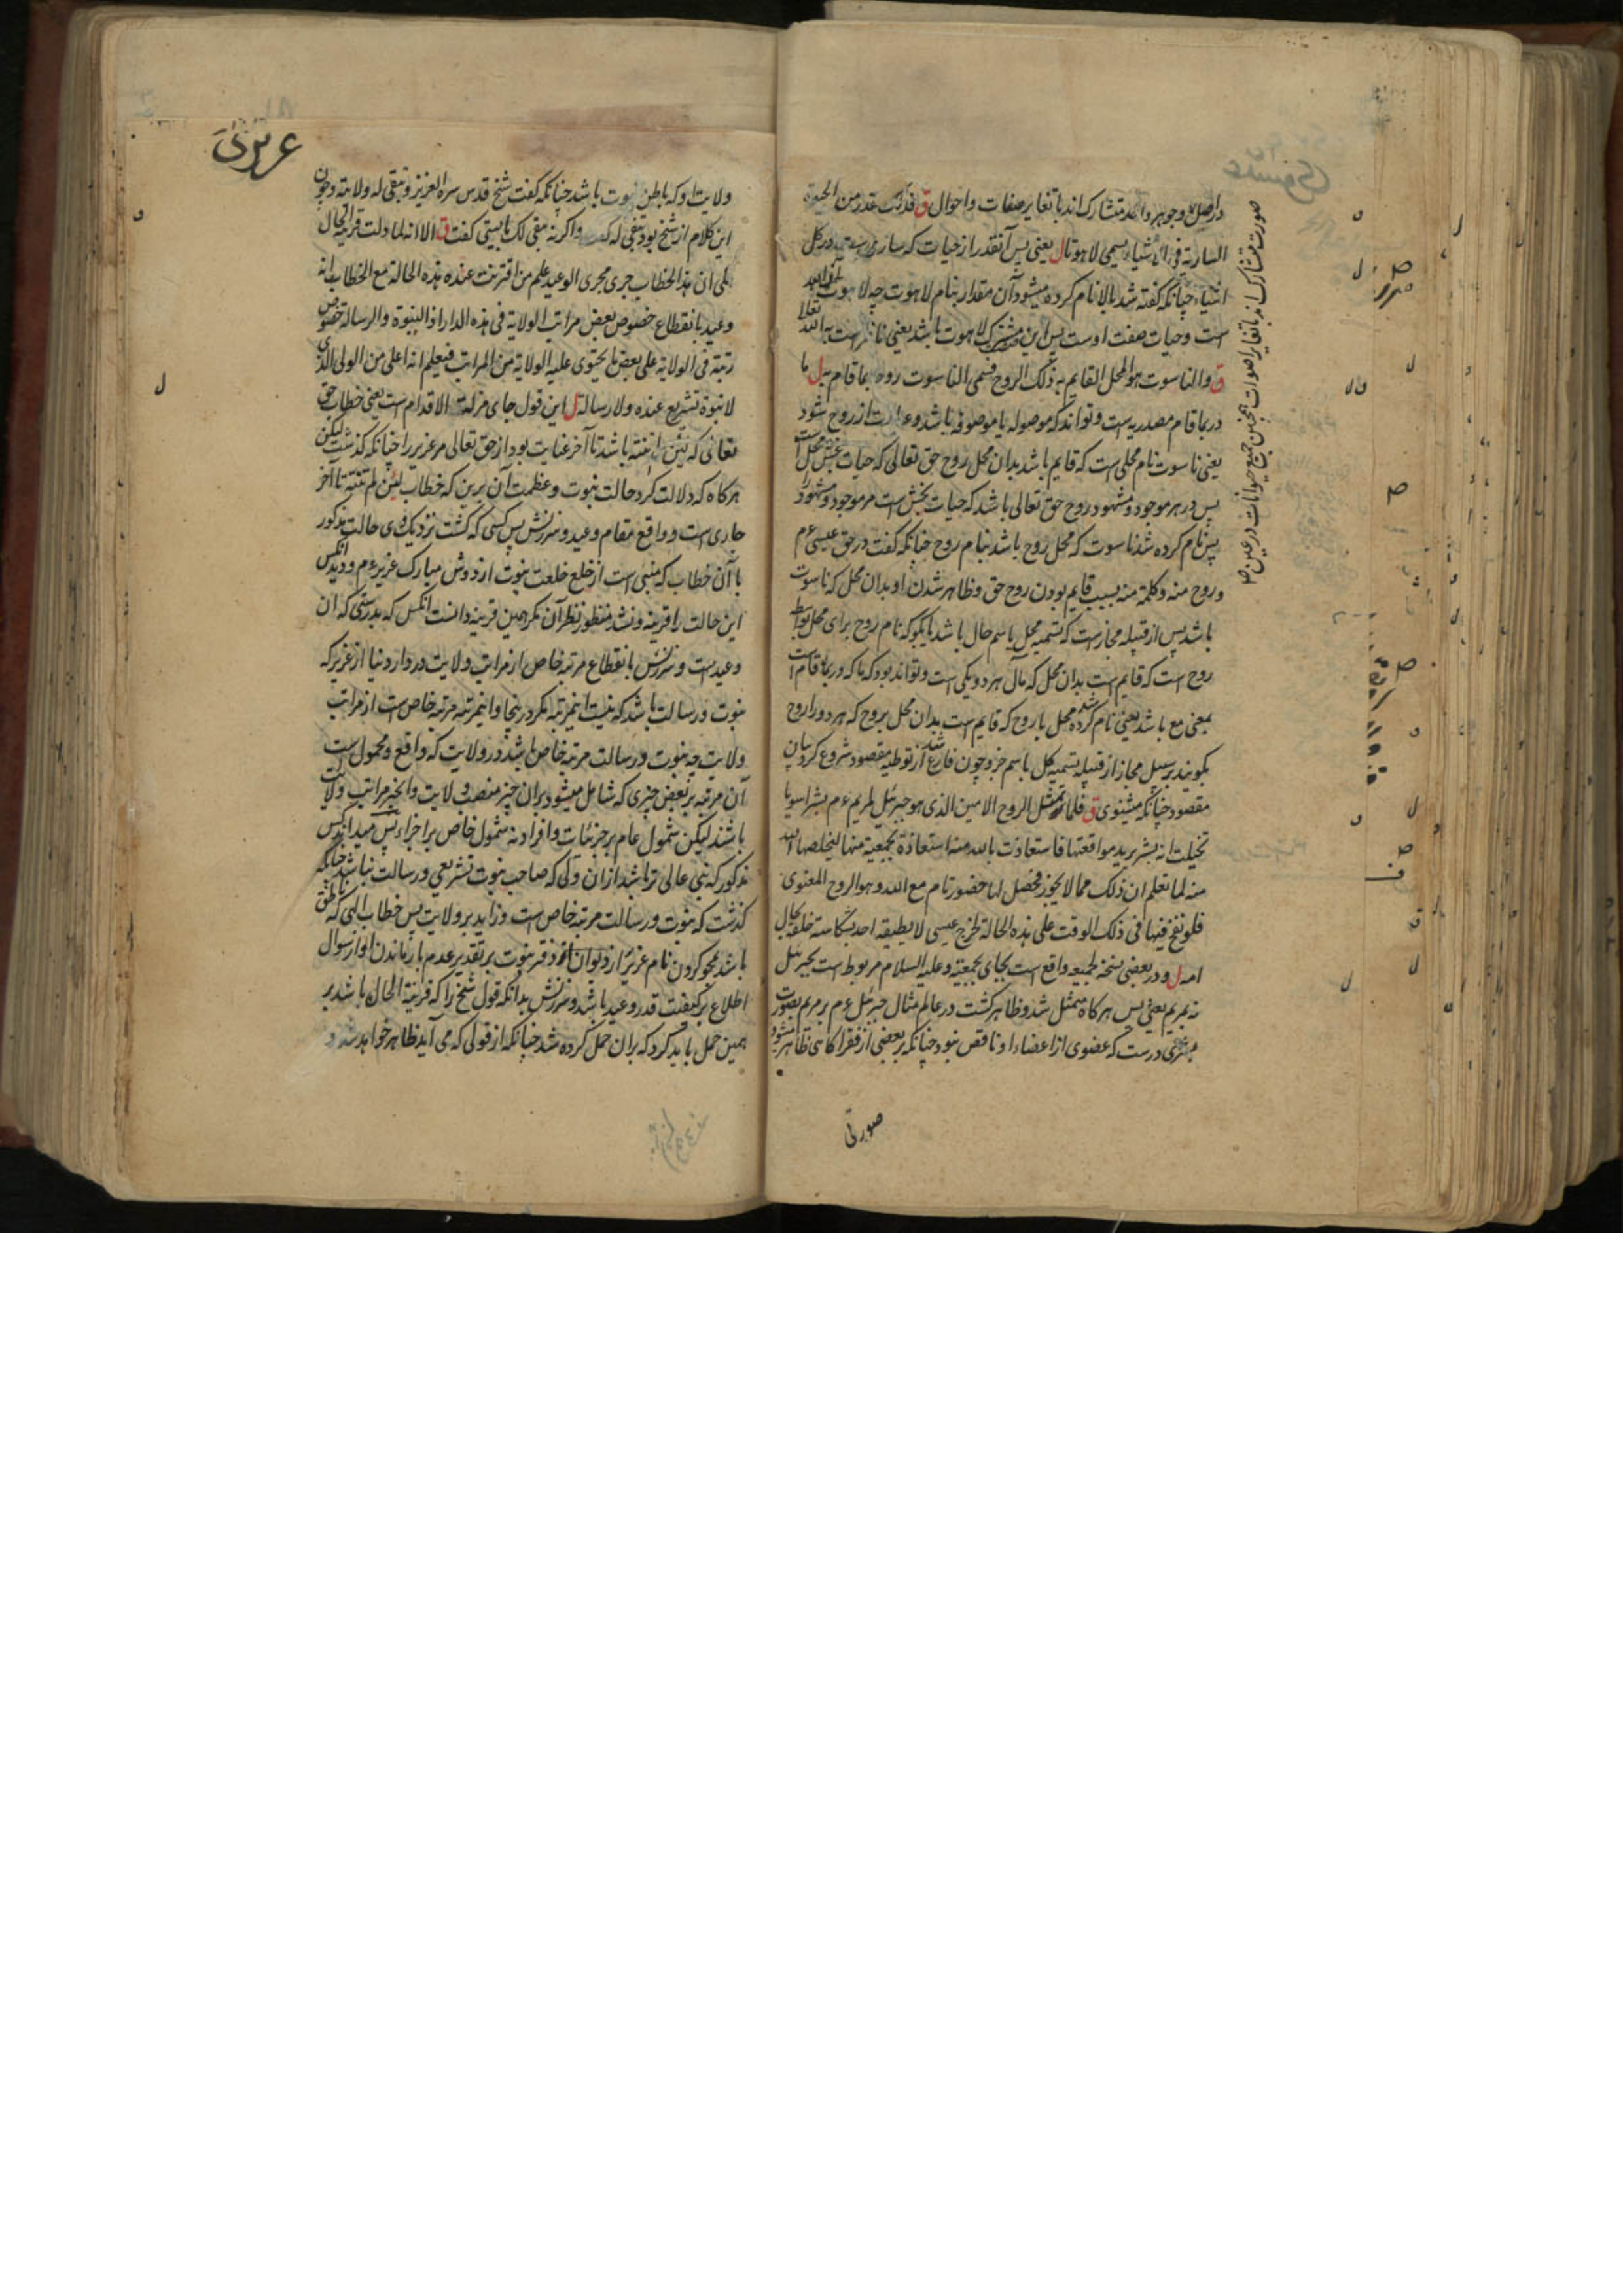 در اصل و جوهر واحد متشارک اند با تغایر صفات و احوال ق فذلک قدر من الحیوة
الساریة فی الاشیاء یسمی لاهوتا ل یعنی پس آنقدر از حیات که ساری است در کل
اشیاء چنانکه گفته شد بالا نام کرده میشود آن مقدار بنام لاهوت چه لاهوت
است و حیات صفت اوست پس این مشترک لاهوت باشد یعنی
ق والناسوت هو المحل القایم به ذلک الروح فسمی الناسوت روحا بما قام به ل ما
در بما قام مصدریه است و تواند که موصوله یا موصوفه باشد و عبارت از روح شود
یعنی ناسوت نام محلی است که قایم باشد بدان محل روح حق تعالی که حیات بخش محل است
پس در هر موجود و مشهود روح حق تعالی باشد که حیات بخش است مر موجود و مشهود را
پس نام کرده شد ناسوت که محل روح باشد بنام روح چنانکه گفت در حق عیسی ع م
و روح منه و کلمة منه بسبب قایم بودن روح حق و ظاهر شدن او بدان محل که ناسوت
باشد پس از قبیله مجاز است که تسمیه محل باسم حال باشد یا بگو که نام روح برای محل بواسطه
روح است که قایم است بدان محل که مآل هر دو یکی است و تواند بود که ما که در بما قام است
بمعنی مع باشد یعنی نام کرده شد محل با روح که قایم است بدان محل بروح که هر دو را روح
بگویند بر سبیل مجاز از قبیله تسمیه کل باسم جزو چون فارغ شد از توطیه مقصود شروع کرد بیان
مقصود چنانکه میشنوی ق فلما تمثل الروح الامین الذی هو جبرئیل لمریم ع م بشرا سویا
تخیلت انه بشر یرید مواقعتها فاستعاذت بالله منه استعاذة بجمعیة منها لیخلصها الله
منه لما تعلم ان ذلک مما لا یجوز فحصل لها حضور تام مع الله و هو الروح المعنوی
فلو نفخ فیها فی ذلک الوقت علی هذه الحالة لخرج عیسی لا یطیقه احد لشکاسة خلقه لحال
امه ل و در بعضی نسخه لجمیعه واقع است بجای بجمعیة و علیه السلام مربوط است بجبرئیل
نه بمریم یعنی پس هرگاه متمثل شد و ظاهر گشت در عالم مثال جبرئیل ع م بر مریم بصورت
بشری درست که عضوی از اعضاء او ناقص نبود چنانکه بر بعضی از فقرا گاهی ظاهر میشود
صورتی
صورت متشارک اند با تغایر اصوات همچنین جمیع حیوانات در عین
ولایت او که باطن نبوت باشد چنانکه گفت شیخ قدس سره العزیز و تبقی له ولایته و چون
این کلام از شیخ بود تبقی له گفت و اگر نه تبقی لک بایستی گفت ق الا انه لما دلت قرینة الحال
علی ان هذا الخطاب جری مجری الوعید علم من اقترنت عنده هذه الحالة مع الخطاب انه
وعید بانقطاع خصوص بعض مراتب الولایة فی هذه الدار اذ النبوة والرسالة خصوص
رتبة فی الولایة علی بعض ما یحتوی علیه الولایة من المراتب فیعلم انه اعلی من الولی الذی
لا نبوة تشریع عنده ولا رسالة ل این قول جای مزلة الاقدام است یعنی خطاب حق
تعالی که لئن لم تنته باشد تا آخر عنایت بود از حق تعالی مر عزیر را چنانکه گذشت لیکن
هرگاه که دلالت کرد حالت نبوت و عظمت آن برین که خطاب لئن لم تنته تا آخر
جاری است و واقع مقام وعید و سرزنش پس کسی که گشت نزدیک وی حالت مذکور
با آن خطاب که منبی است از خلع خلعت نبوت از دوش مبارک عزیر ع م و دید آنکس
این حالت را قرینه و نشد منظور نظر آن مگر همین قرینه دانست آنکس که بدرستی که آن
وعید است و سرزنش بانقطاع مرتبه خاص از مراتب ولایت در دار دنیا از عزیر که
نبوت و رسالت باشد که نیست اینمرتبه مگر درینجا و اینمرتبه مرتبه خاص است از مراتب
ولایت چه نبوت و رسالت مرتبه خاص باشد در ولایت که واقع و محمول است
آن مرتبه بر بعض چیزی که شامل میشود بران چیز منصب ولایت و آنچیز مراتب ولایت
باشند لیکن شمول عام بر جزئیات و افراد نه شمول خاص بر اجزاء پس میداند کس
مذکور که نبی عالی تر باشد ازان ولی که صاحب نبوت تشریعی و رسالت نباشد چنانکه
گذشت که نبوت و رسالت مرتبه خاص است و زاید بر ولایت پس خطاب الهی که ناطق
باشد بمحو کردن نام عزیر از دیوان و دفتر نبوت بر تقدیر عدم باز ماندن او از سوال
اطلاع بر کیفیت قدر وعید باشد و سرزنش بدانکه قول شیخ را که قرینة الحال باشد بر
همین حمل باید کرد که بران حمل کرده شد چنانکه از قولی که می آید ظاهر خواهد شد و